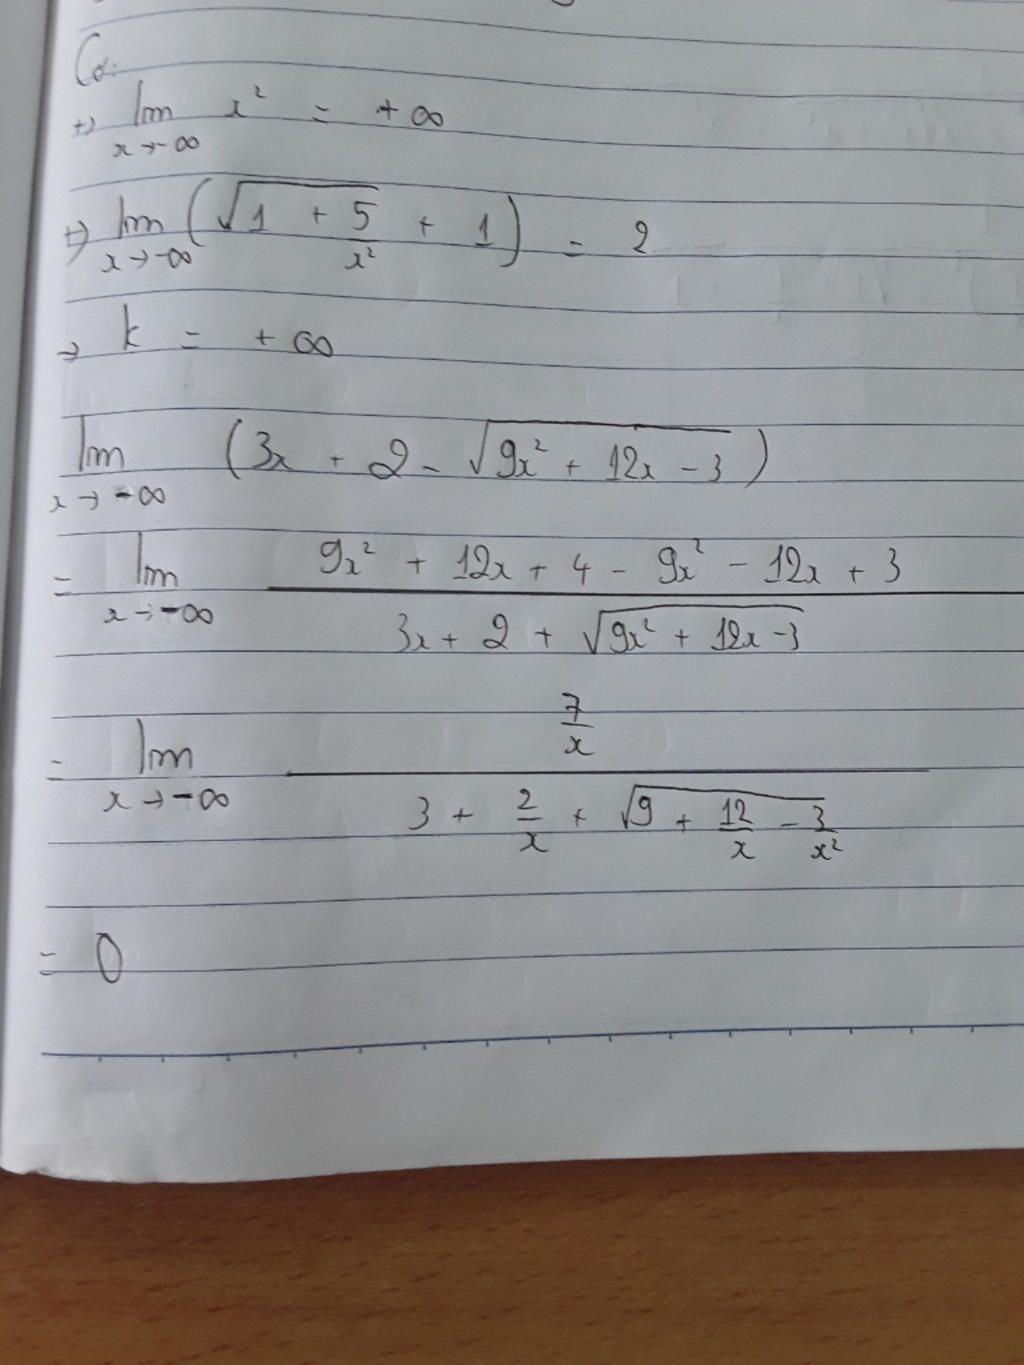 Có:
+) lim x→-∞ x² = +∞
+) lim x→-∞ (√(1 + 5/x²) + 1) = 2
→ k = +∞
lim x→-∞ (3x + 2 - √(9x² + 12x - 3))
= lim x→-∞ (9x² + 12x + 4 - 9x² - 12x + 3)/(3x + 2 + √(9x² + 12x - 3))
= lim x→-∞ (7/x)/(3 + 2/x + √(9 + 12/x - 3/x²))
= 0